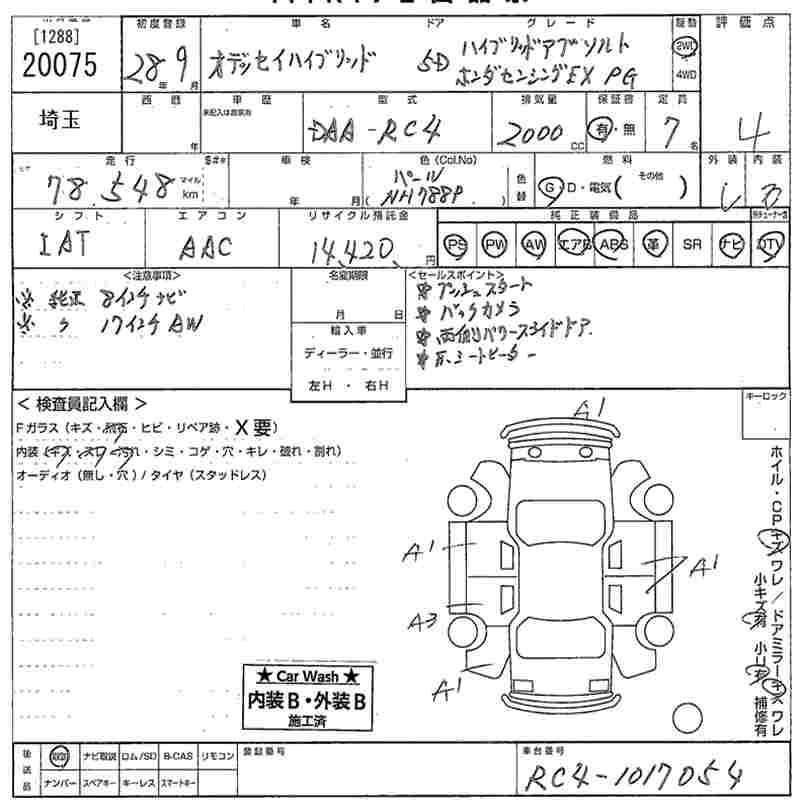 [1288]
20075
初度登録
28年9月
車名
オデッセイハイブリッド
ドア
5D
グレード
ハイブリッドアブソルト
ホンダセンシングEX PG
駆動
2WD
4WD
評価点
4
埼玉
西暦
年
車歴
未記入は自家用
型式
DAA-RC4
排気量
2000 CC
保証書
有・無
定員
7名
走行
78,548
マイル
km
S#*
車検
年 月
色(Col.No)
パール
(NH788P)
色替
燃料
G・D・電気( その他 )
外装
内装
B
シフト
IAT
エアコン
AAC
リサイクル預託金
14,420 円
純正装備品
PS PW AW エアB ABS 革 SR ナビ DTV
<注意事項>
※ 純正 8インチナビ
※ 〃 17インチAW
名変期限
月 日
輸入車
ディーラー・並行
左H・右H
<セールスポイント>
※プッシュスタート
※バックカメラ
※両側パワースライドドア
※F.シートヒーター
<検査員記入欄>
Fガラス(キズ・飛石・ヒビ・リペア跡・X要)
内装(キズ・スレ・汚れ・シミ・コゲ・穴・キレ・破れ・割れ)
オーディオ(無し・穴)/タイヤ(スタッドレス)
キーロック
A1
A1
A1
A3
A1
ホイル・CPキズ ワレ/ドアミラーキズ ワレ
小キズ有 小U有 補修有
★ Car Wash ★
内装B・外装B
施工済
後送品
ナビ取説 ロム/SD B-CAS リモコン
ナンバー スペアキー キーレス スマートキー
登録番号
車台番号
RC4-1017054